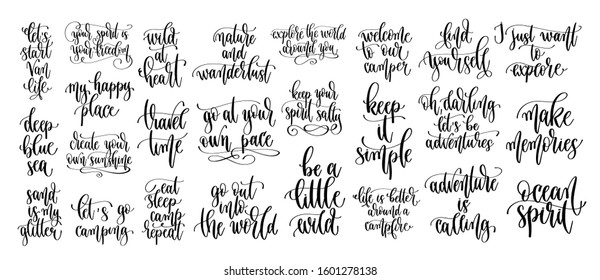 let's
start
van
life
deep
blue
sea
sand
is my
glitter
your spirit is
your freedom
my happy
place
create your
own sunshine
let's go
camping
wild
at
heart
travel
time
eat
sleep
camp
repeat
nature
and
wanderlust
go at your
own pace
go out
into
the world
explore the world
around you
keep your
spirit salty
be a
little
wild
welcome
to our
camper
keep
it
simple
life is better
around a
campfire
find
yourself
oh darling
let's be
adventures
adventure
is
calling
I just want
to
explore
make
memories
ocean
spirit
shutterstock.com · 1601278138